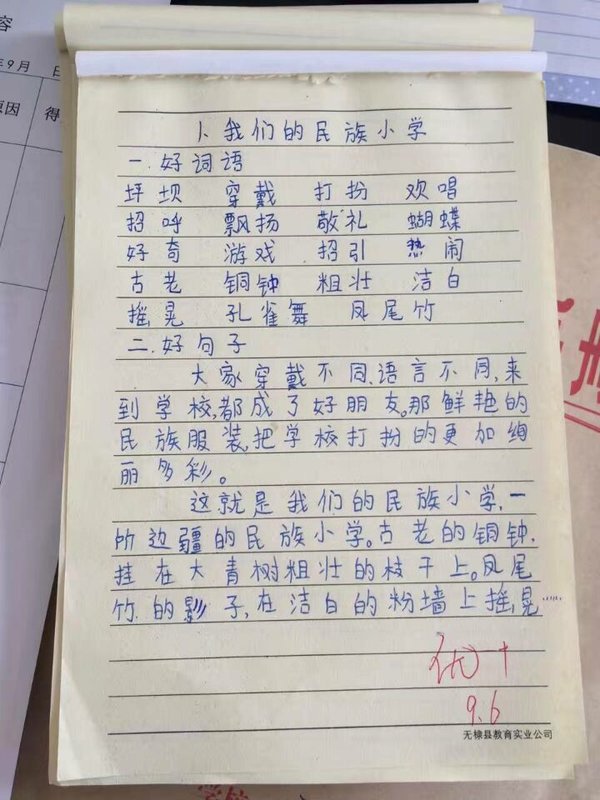 容
年9月 日
原因 得
1、我们的民族小学
一.好词语
坪坝 穿戴 打扮 欢唱
招呼 飘扬 敬礼 蝴蝶
好奇 游戏 招引 热闹
古老 铜钟 粗壮 洁白
摇晃 孔雀舞 凤尾竹
二.好句子
大家穿戴不同、语言不同,来
到学校,都成了好朋友。那鲜艳的
民族服装,把学校打扮的更加绚
丽多彩。
这就是我们的民族小学,一
所边疆的民族小学。古老的铜钟,
挂在大青树粗壮的枝干上。凤尾
竹的影子,在洁白的粉墙上摇晃……
优+
9.6
无棣县教育实业公司